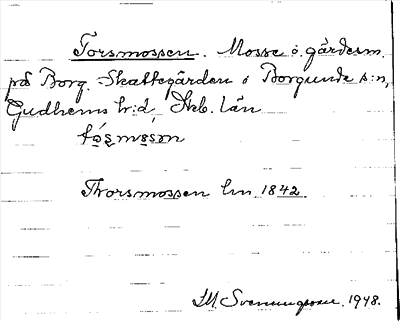 Torsmossen. Mosse o. gärdesm.
på Borg. Skattegården i Borgunda s:n,
Gudhems h:d, Skb. län
Thorsmossen lm 1842.
SM Svenungsson. 1948.